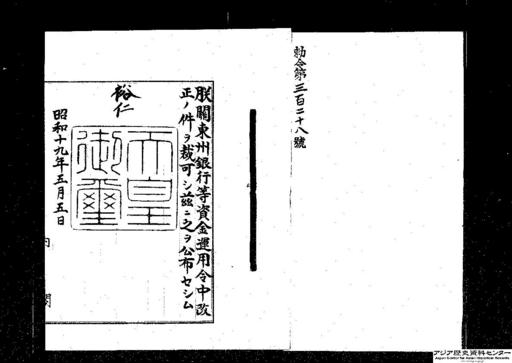 勅令第三百二十八號
朕關東州銀行等資金運用令中改
正ノ件ヲ裁可シ茲ニ之ヲ公布セシム
裕仁
天皇御璽
昭和十九年五月五日
内
閣
アジア歴史資料センター
Japan Center for Asian Historical Records